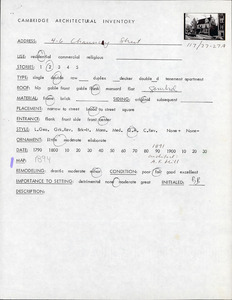 CAMBRIDGE ARCHITECTURAL INVENTORY
ADDRESS: 4-6 Street
USE: residential commercial religious
STORIES: 1 2 3 4 5
TYPE: single double row duplex decker double d apartment
ROOF: hip gable front gable flat mansard
MATERIAL: frame brick SIDING: original subsequent
PLACEMENT: narrow to street broad to street square
ENTRANCE: front side front center
STYLE: L.Geo. Grk.Rev. Ital. Mans. Med. Q.A. C.Rev. None+ None=
ORNAMENT: little moderate elaborate
DATE: 1790 1800 10 20 30 40 50 60 70 80 90 1900 10 20 30
1891
MAP: 1894
Architect:
REMODELING: drastic moderate either CONDITION: poor fair good excellent
IMPORTANCE TO SETTING: detrimental none moderate great INITIALED:
DESCRIPTION: